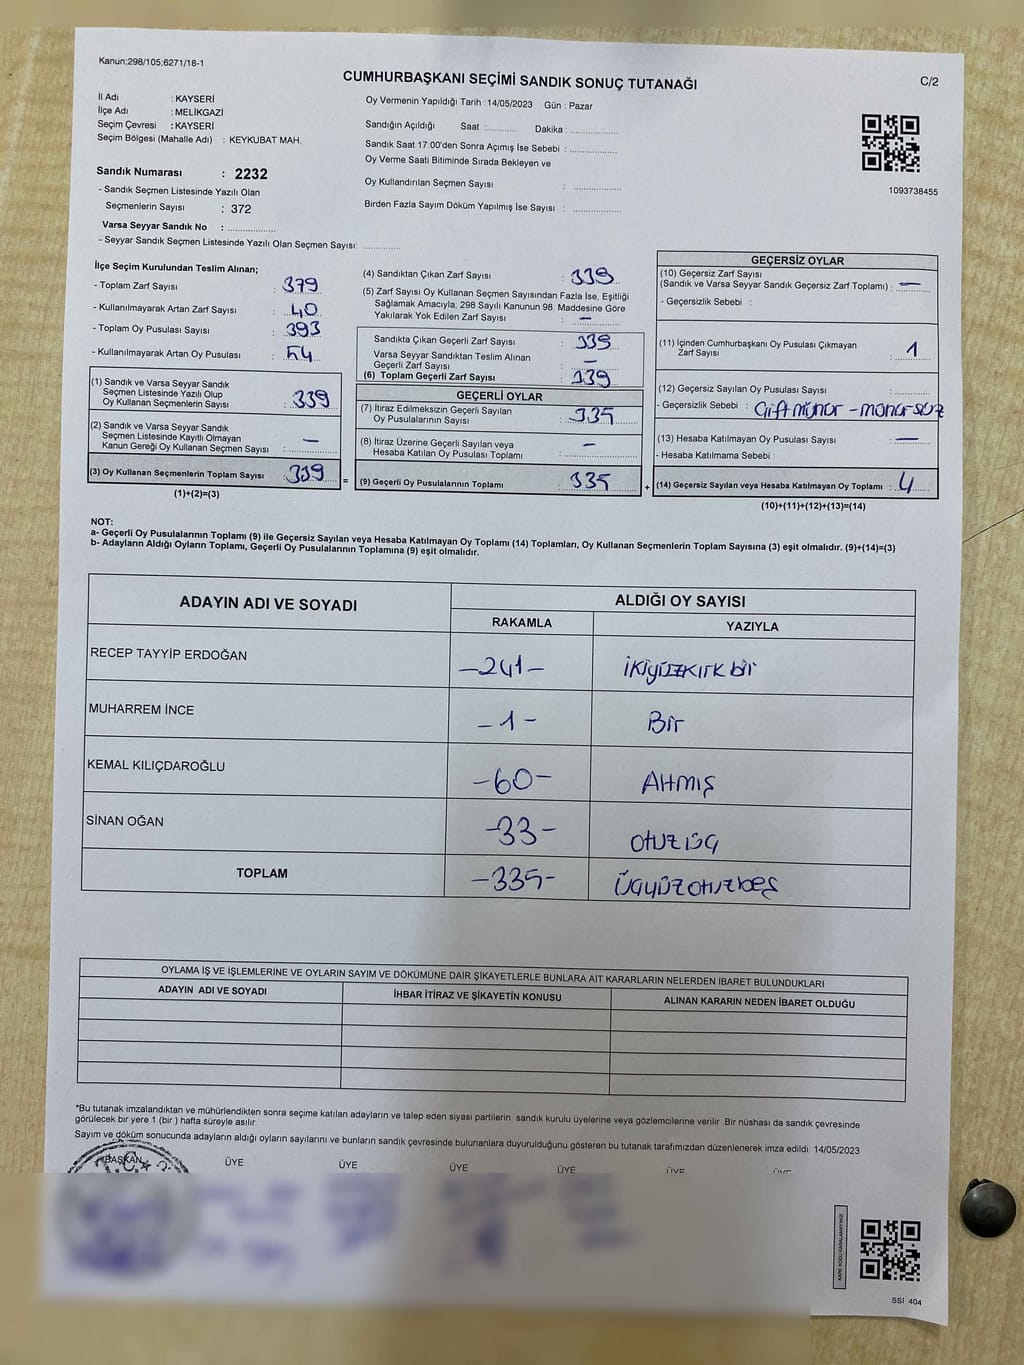 Kanun;298/105;6271/18-1
CUMHURBAŞKANI SEÇİMİ SANDIK SONUÇ TUTANAĞI
C/2
İl Adı : KAYSERİ
İlçe Adı : MELİKGAZİ
Seçim Çevresi : KAYSERİ
Seçim Bölgesi (Mahalle Adı) : KEYKUBAT MAH.
Sandık Numarası : 2232
- Sandık Seçmen Listesinde Yazılı Olan
Seçmenlerin Sayısı : 372
Varsa Seyyar Sandık No : ..............
- Seyyar Sandık Seçmen Listesinde Yazılı Olan Seçmen Sayısı: ............
Oy Vermenin Yapıldığı Tarih : 14/05/2023 Gün : Pazar
Sandığın Açıldığı Saat :.......... Dakika : ..............
Sandık Saat 17:00'den Sonra Açımış İse Sebebi : ..............
Oy Verme Saati Bitiminde Sırada Bekleyen ve
Oy Kullandırılan Seçmen Sayısı : ..............
Birden Fazla Sayım Döküm Yapılmış İse Sayısı : ..............
1093738455
İlçe Seçim Kurulundan Teslim Alınan;
- Toplam Zarf Sayısı : 379
- Kullanılmayarak Artan Zarf Sayısı : 40
- Toplam Oy Pusulası Sayısı : 393
- Kullanılmayarak Artan Oy Pusulası : 54
(1) Sandık ve Varsa Seyyar Sandık
Seçmen Listesinde Yazılı Olup
Oy Kullanan Seçmenlerin Sayısı : 339
(2) Sandık ve Varsa Seyyar Sandık
Seçmen Listesinde Kayıtlı Olmayan
Kanun Gereği Oy Kullanan Seçmen Sayısı : —
(3) Oy Kullanan Seçmenlerin Toplam Sayısı : 339 =
(1)+(2)=(3)
(4) Sandıktan Çıkan Zarf Sayısı : 339
(5) Zarf Sayısı Oy Kullanan Seçmen Sayısından Fazla İse, Eşitliği
Sağlamak Amacıyla; 298 Sayılı Kanunun 98. Maddesine Göre
Yakılarak Yok Edilen Zarf Sayısı : —
Sandıkta Çıkan Geçerli Zarf Sayısı : 339
Varsa Seyyar Sandıktan Teslim Alınan
Geçerli Zarf Sayısı : —
(6) Toplam Geçerli Zarf Sayısı : 339
GEÇERLİ OYLAR
(7) İtiraz Edilmeksizin Geçerli Sayılan
Oy Pusulalarının Sayısı : 335
(8) İtiraz Üzerine Geçerli Sayılan veya
Hesaba Katılan Oy Pusulası Toplamı : —
(9) Geçerli Oy Pusulalarının Toplamı : 335 +
GEÇERSİZ OYLAR
(10) Geçersiz Zarf Sayısı
(Sandık ve Varsa Seyyar Sandık Geçersiz Zarf Toplamı) : —
- Geçersizlik Sebebi :
(11) İçinden Cumhurbaşkanı Oy Pusulası Çıkmayan
Zarf Sayısı : 1
(12) Geçersiz Sayılan Oy Pusulası Sayısı :
- Geçersizlik Sebebi : Çift mühür - mühürsüz
(13) Hesaba Katılmayan Oy Pusulası Sayısı : —
- Hesaba Katılmama Sebebi :
(14) Geçersiz Sayılan veya Hesaba Katılmayan Oy Toplamı : 4
(10)+(11)+(12)+(13)=(14)
NOT:
a- Geçerli Oy Pusulalarının Toplamı (9) ile Geçersiz Sayılan veya Hesaba Katılmayan Oy Toplamı (14) Toplamları, Oy Kullanan Seçmenlerin Toplam Sayısına (3) eşit olmalıdır. (9)+(14)=(3)
b- Adayların Aldığı Oyların Toplamı, Geçerli Oy Pusulalarının Toplamına (9) eşit olmalıdır.
ADAYIN ADI VE SOYADI ALDIĞI OY SAYISI
RAKAMLA YAZIYLA
RECEP TAYYİP ERDOĞAN -241- ikiyüzkırk bir
MUHARREM İNCE -1- Bir
KEMAL KILIÇDAROĞLU -60- Altmış
SİNAN OĞAN -33- otuz üç
TOPLAM -335- Üçyüzotuzbeş
OYLAMA İŞ VE İŞLEMLERİNE VE OYLARIN SAYIM VE DÖKÜMÜNE DAİR ŞİKAYETLERLE BUNLARA AİT KARARLARIN NELERDEN İBARET BULUNDUKLARI
ADAYIN ADI VE SOYADI İHBAR İTİRAZ VE ŞİKAYETİN KONUSU ALINAN KARARIN NEDEN İBARET OLDUĞU
*Bu tutanak imzalandıktan ve mühürlendikten sonra seçime katılan adayların ve talep eden siyasi partilerin sandık kurulu üyelerine veya gözlemcilerine verilir. Bir nüshası da sandık çevresinde
görülecek bir yere 1 (bir ) hafta süreyle asılır.
Sayım ve döküm sonucunda adayların aldığı oyların sayılarını ve bunların sandık çevresinde bulunanlara duyurulduğunu gösteren bu tutanak tarafımızdan düzenlenerek imza edildi. 14/05/2023
BAŞKAN ÜYE ÜYE ÜYE ÜYE ÜYE ÜYE
SSI 404